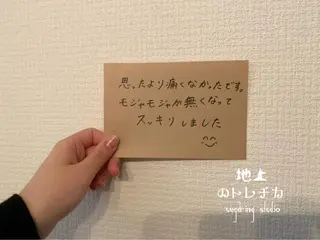 思ったより痛くなかったです。
モジャモジャが無くなって
スッキリしました
地上
のトレチカ
sugaring studio